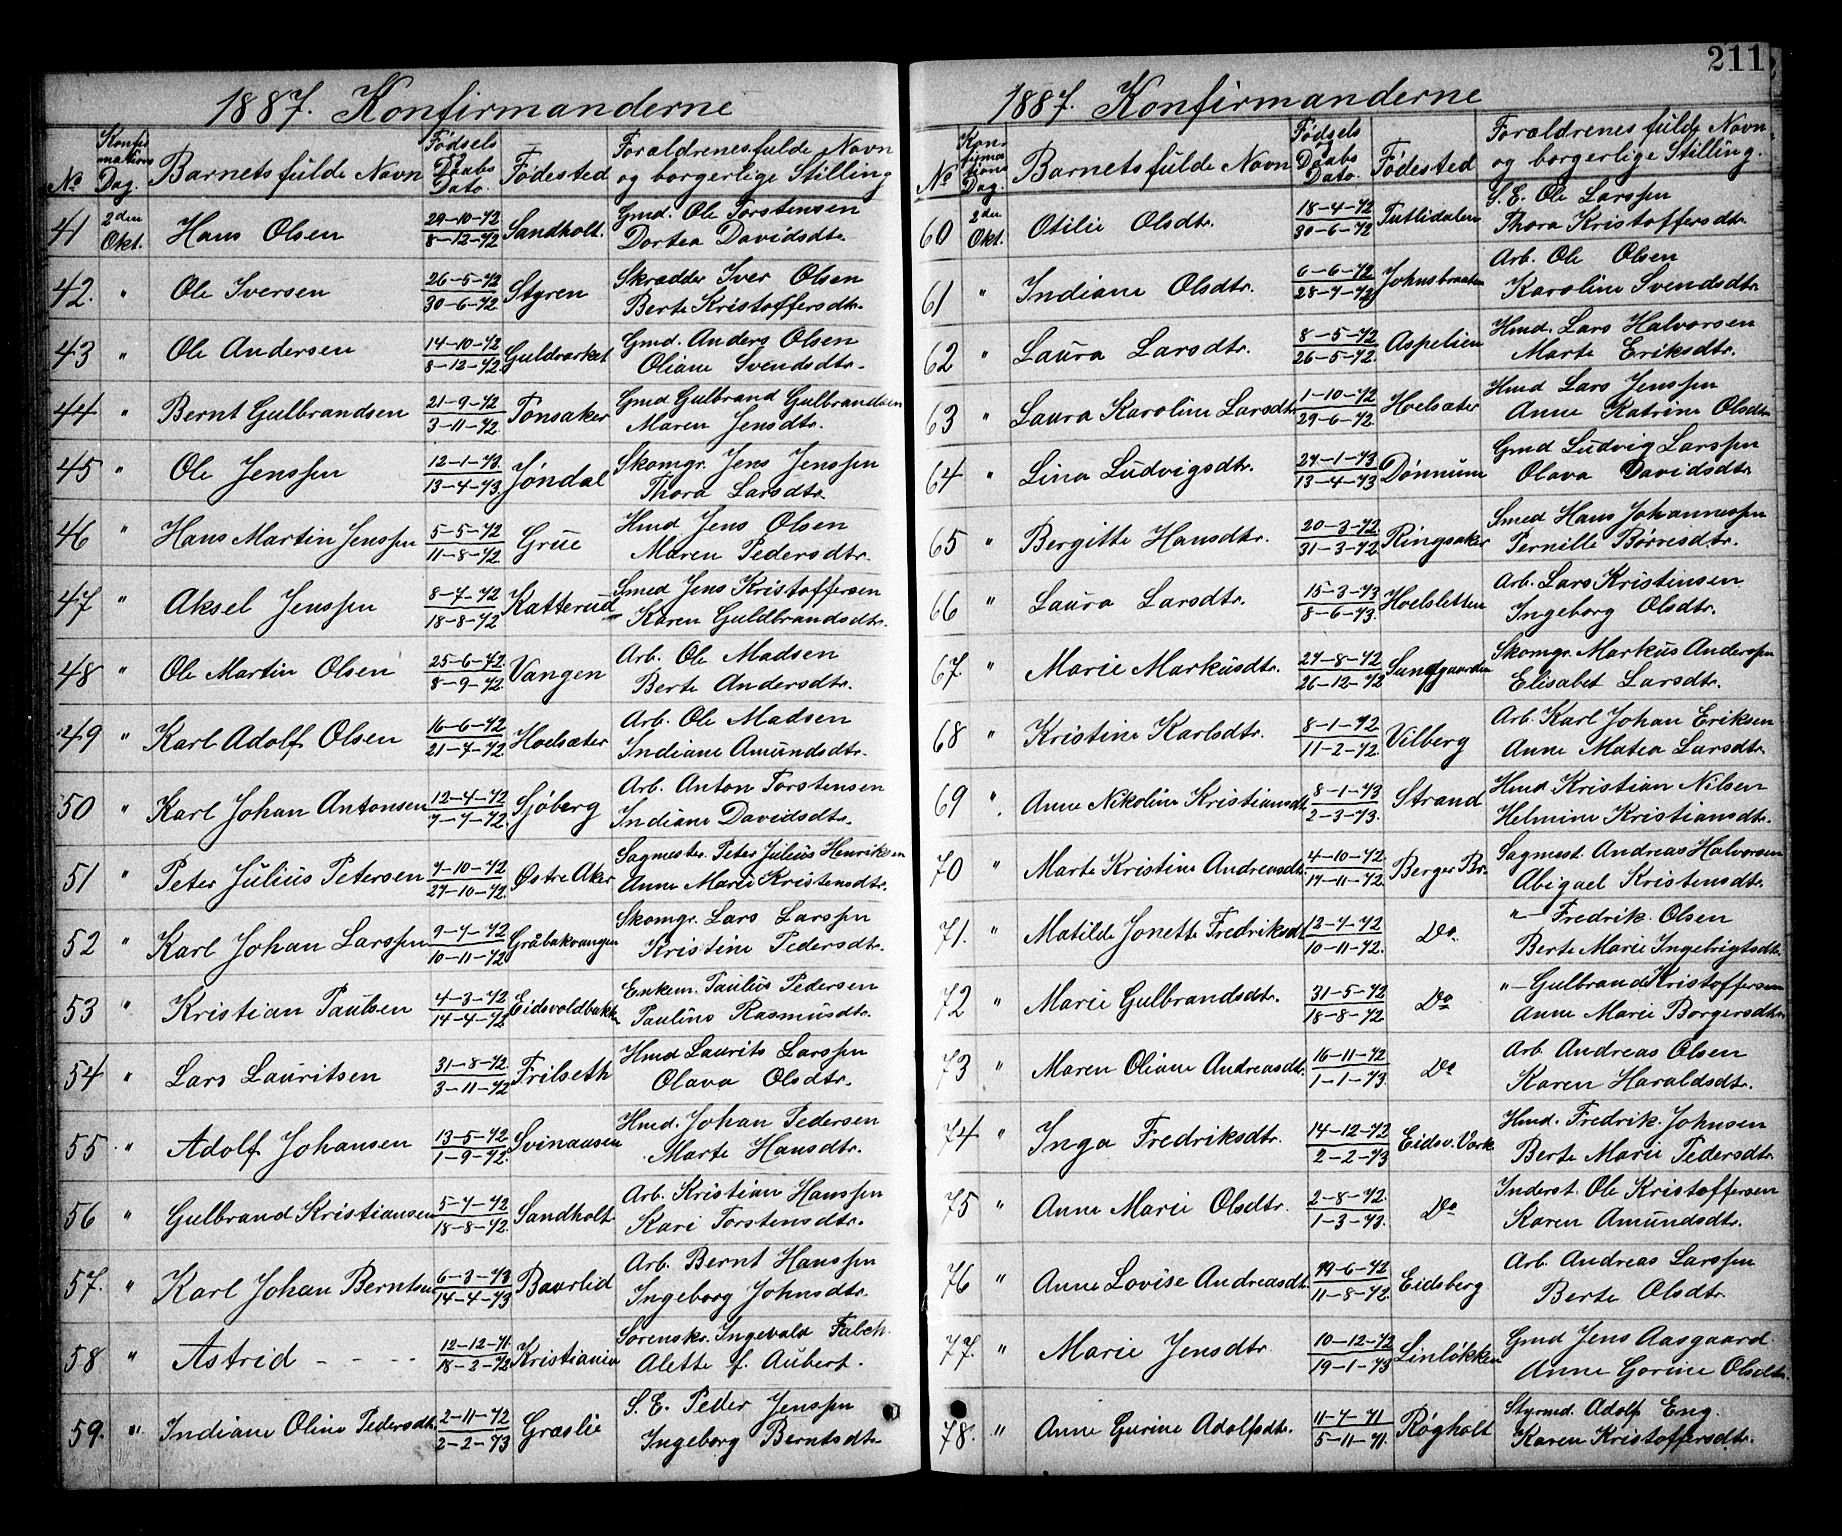 211
1887. Konfirmanderne
No Konfirmations Dag. Barnets fulde Navn Fødsels og Daabs Dato. Fødested Forældrenes fulde Navn og borgerlige Stilling
41 2den Okt. Hans Olsen 29-10-72 8-12-72 Sandholt. Gmd. Ole Torstensen
Dortea Davidsdtr.
42. " Ole Iversen 26-5-72 30-6-72 Styren Skrædder Iver Olsen
Berte Kristoffersdtr.
43 " Ole Andersen 14-10-72 8-12-72 Guldværket Gmd. Anders Olsen
Oliane Svendsdtr.
44 " Bernt Gulbrandsen 21-9-72 3-11-72. Tonsaker Gmd Gulbrand Gulbrandsen
Maren Jensdtr.
45 " Ole Jenssen 12-1-73. 13-4-73. Jøndal Skomgr. Jens Jenssen
Thora Larsdtr.
46 " Hans Martin Jenssen 5-5-72 11-8-72. Grue Hmd Jens Olsen
Maren Pedersdtr.
47 " Aksel Jenssen 8-7-72 18-8-72 Katterud Smed Jens Kristoffersen
Karen Guldbrandsdtr.
48 " Ole Martin Olsen 25-6-72 8-9-72. Vangen Arb. Ole Madsen
Berte Andersdtr.
49 " Karl Adolf Olsen 16-6-72 21-7-72 Hoelsæter Arb. Ole Madsen
Indiane Amundsdtr.
50 " Karl Johan Antonsen 12-4-72 7-7-72. Sjøberg Arb. Anton Torstensen
Indiane Davidsdtr.
51 " Peter Julius Petersen 7-10-72 27-10-72. Østre Aker Sagmester. Peter Julius Henriksen
Anne Marie Kristensdtr.
52 " Karl Johan Larssen 9-7-72 10-11-72 Gråbakvangen Skomgr. Lars Larssen
Kristine Pedersdtr.
53 " Kristian Paulsen 4-3-72 14-4-72 Eidsvoldbakken Enkem. Paulus Pedersen
Pauline Rasmusdtr.
54 " Lars Lauritsen 31-8-72 3-11-72 Frilseth Hmd Laurits Larssen
Olava Olsdtr.
55 " Adolf Johansen 13-5-72 1-9-72. Svinaasen Hmd. Johan Pedersen
Marte Hansdtr.
56 " Gulbrand Kristiansen 5-7-72 18-8-72. Sandholt Arb. Kristian Hanssen
Kari Torstensdtr.
57. " Karl Johan Berntsen 6-3-73 14-4-73 Baarlid Arb. Bernt Hanssen
Ingeborg Johnsdtr.
58 " Astrid - - - - 12-12-71 18-2-72 Kristiania Sorenskr. Ingevald Falch.
Alette f. Aubert.
59. " Indiane Oline Pedersdtr. 2-11-72 2-2-73 Græslie S. E. Peder Jenssen
Ingeborg Berntsdtr.
1887. Konfirmanderne
No Konfirmations Dag. Barnets fulde Navn Fødsels og Daabs Dato. Fødested Forældrenes fulde Navn og borgerlige Stilling.
60 2den Okt. Otilie Olsdtr. 18-4-72 30-6-72 Tutlidalen S. E. Ole Larssen
Thora Kristoffersdtr.
61 " Indiane Olsdtr. 6-6-72 28-7-72 Johnsbraaten Arb. Ole Olsen
Karoline Svendsdtr.
62 " Laura Larsdtr. 8-5-72 26-5-72. Aspelien Hmd. Lars Halvorsen
Marte Eriksdtr.
63 " Laura Karoline Larsdtr. 1-10-72 29-6-72. Hoelsæter Hmd Lars Jenssen
Anne Katrine Olsdtr.
64 " Lina Ludvigsdtr. 27-1-73 13-4-73 Dønnum Gmd Ludvig Larssen
Olava Davidsdtr.
65 " Bergitte Hansdtr. 20-3-72. 31-3-72. Ringsaker Smed Hans Johannessen
Pernille Borresdtr.
66 " Laura Larsdtr. 15-3-73 8-6-73. Hoelsletten Arb. Lars Kristinsen
Ingeborg Olsdtr.
67. " Marie Markusdtr. 27-8-72 26-12-72 Sundgaarden Skomgr. Markus Anderssen
Elisabet Larsdtr.
68 " Kristine Karlsdtr. 8-1-72 11-2-72. Vilberg Arb. Karl Johan Eriksen
Anne Matea Larsdtr.
69 " Anne Nikoline Kristiansdtr. 8-1-73 2-3-73. Strand Hmd Kristian Nilsen
Helmine Kristiansdtr.
70 " Marte Kristine Andreasdtr. 4-10-72. 17-11-72. Berger Br. Sagmest. Andreas Halvorsen
Abigael Kristensdtr.
71. " Matilde Jonette Fredriksdtr. 12-7-72 10-11-72. Do. "- Fredrik Olsen
Berte Marie Ingebrigtsdtr.
72 " Marie Gulbrandsdtr. 31-5-72 18-8-72. Do "- Gulbrand Kristoffersen
Anne Marie Borgersdtr.
73 " Maren Oliane Andreasdtr. 16-11-72 1-1-73. Do Arb. Andreas Olsen
Karen Haraldsdtr.
74 " Inga Fredriksdtr. 14-12-72 2-2-73 Eidsv. Værk Hmd. Fredrik Johnsen
Berte Marie Pedersdtr.
75 " Anne Marie Olsdtr. 2-8-72. 1-3-73. Do Inderst. Ole Kristoffersen
Karen Amundsdtr.
76 " Anne Lovise Andreasdtr. 19-6-72 11-8-72. Eidsberg Arb. Andreas Larssen
Berte Olsdtr.
77. " Marie Jensdtr. 10-12-72 19-1-73 Linløkken Gmd Jens Aasgaard
Anne Gorine Olsdtr.
78. " Anne Gurine Adolfsdtr. 11-7-71 5-11-71. Røgholt Styrmd. Adolf Eng.
Karen Kristoffersdtr.